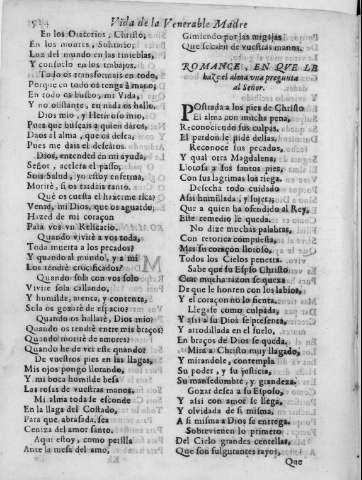 Vida de la Venerable Madre
En los Oratorios, Christo,
En los montes, Solitario;
Luz del mundo en las tinieblas,
Y consuelo en los trabajos.
Todo os transformais en todo,
Porque en todo os tenga à mano
En todo os busco, mi Vida,
Y no obstante, en nada os hallo.
Dios mio, y Hermoso mio,
Pues que buscais à quien daros,
Daos al alma, que os desea,
Pues me dais el desearos.
Dios, entended en mi ayuda,
Señor, accelera el passo,
Sois Salud, yo estoy enferma,
Morirè, si os tardais tanto.
Què os cuesta el hazerme rica?
Venid, mi Dios, que os aguardo,
Hazed de mi coraçon
Para vos vn Relicario.
Quando vivirè à vos toda,
Toda muerta à los pecados?
Y quando al mundo, y a mi
Los tendrè crucificados?
Quando sola con vos solo
Vivire sola callando,
Y humilde, atenta, y contenta,
Sola os gozarè de espacio?
Quando os hallarè, Dios mio;
Quando os tendrè entre mis braços?
Quando morirè de amores?
Quando he de ver este quando?
De vuestros pies en las llagas,
Mis ojos pongo llorando,
Y mi boca humilde besa
Las rosas de vuestras manos.
Mi alma toda se esconde
En la llaga del Costado,
Para que abrasada, sea
Ceniza del amor santo.
Aqui estoy, como perilla
Ante la mesa del amo,
Gimiendo por las migajas
Que se caen de vuestras manos.
ROMANCE, EN QUE LE
haze el alma una pregunta
al Señor.
POstrada a los pies de Christo
El alma con mucha pena,
Reconociendo sus culpas,
El perdon le pide dellas.
Reconoce sus pecados,
Y qual otra Magdalena,
Llorosa à los santos pies,
Con sus lagrimas los riega.
Desecha todo cuidado
Assi humillada, y sujeta;
Que a quien ha ofendido al Rey,
Este remedio le queda.
No dize muchas palabras,
Con retorica compuesta,
Mas su coraçon lloroso,
Todos los Cielos penetra.
Sabe que su Esposo Christo
Con mucha razon se quexa
De que le honren con los labios,
Y el coraçon no lo sienta.
Llegase como culpada,
Y assi a su Dios se presenta,
Y arrodillada en el suelo,
En braços de Dios se queda.
Mira a Christo muy llagado,
Y mirandole, contempla
Su poder, y su justicia,
Su mansedumbre, y grandeza.
Gozar desea a su Esposo,
Y assi con amor se llega,
Y olvidada de si misma,
A si misma a Dios se entrega.
Sobrevienen lo primero
Del Cielo grandes centellas,
Que son fulgurantes rayos,
Que